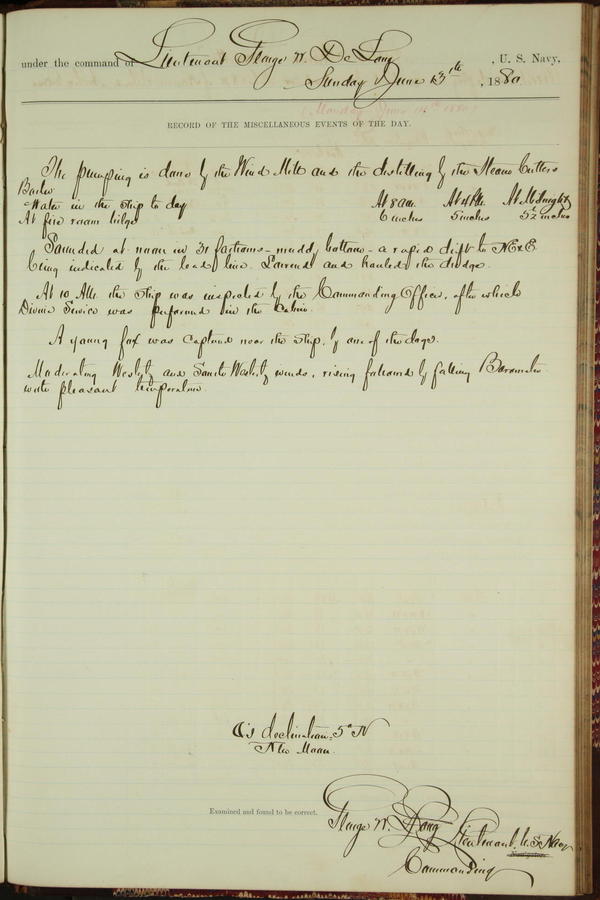 under the command of Lieutenant George W. De Long, U. S. Navy,
Sunday June 13th, 1880
RECORD OF THE MISCELLANEOUS EVENTS OF THE DAY.
The pumping is done by the Wind Mill and the distilling by the Steam Cutters
Boiler
Water in the Ship to day At 8 am. At 4 PM. At Midnight
At fire room bilge 6 inches 5 inches 5½ inches
Sounded at noon in 31 fathoms - muddy bottom - a rapid drift to NExE
being indicated by the lead line. Lowered and hauled the dredge.
At 10 AM. the Ship was inspected by the Commanding Officer, after which
Divine Service was performed in the Cabin.
A young fox was captured near the Ship, by one of the dogs.
Moderating Westerly and South Westerly winds, rising followed by falling Barometer
with pleasant temperature.
's declination 5° N
New Moon.
Examined and found to be correct.
George W. De Long Lieutenant, U.S. Navy
Navigator.
Commanding